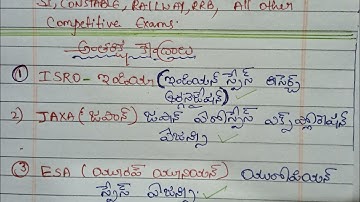 SI, CONSTABLE, RAILWAY, RRB, All other
Competitive Exams.
అంతరిక్ష కేంద్రాలు
① ISRO - ఇండియా (ఇండియన్ స్పేస్ రిసెర్చ్
ఆర్గనైజేషన్)
2) JAXA (జపాన్) జపాన్ ఏరోస్పేస్ ఎక్స్ ప్లోరాషన్
ఏజెన్సీ
③ ESA (యూరప్ యూనియన్) యురోపియన్
స్పేస్ ఏజెన్సీ.